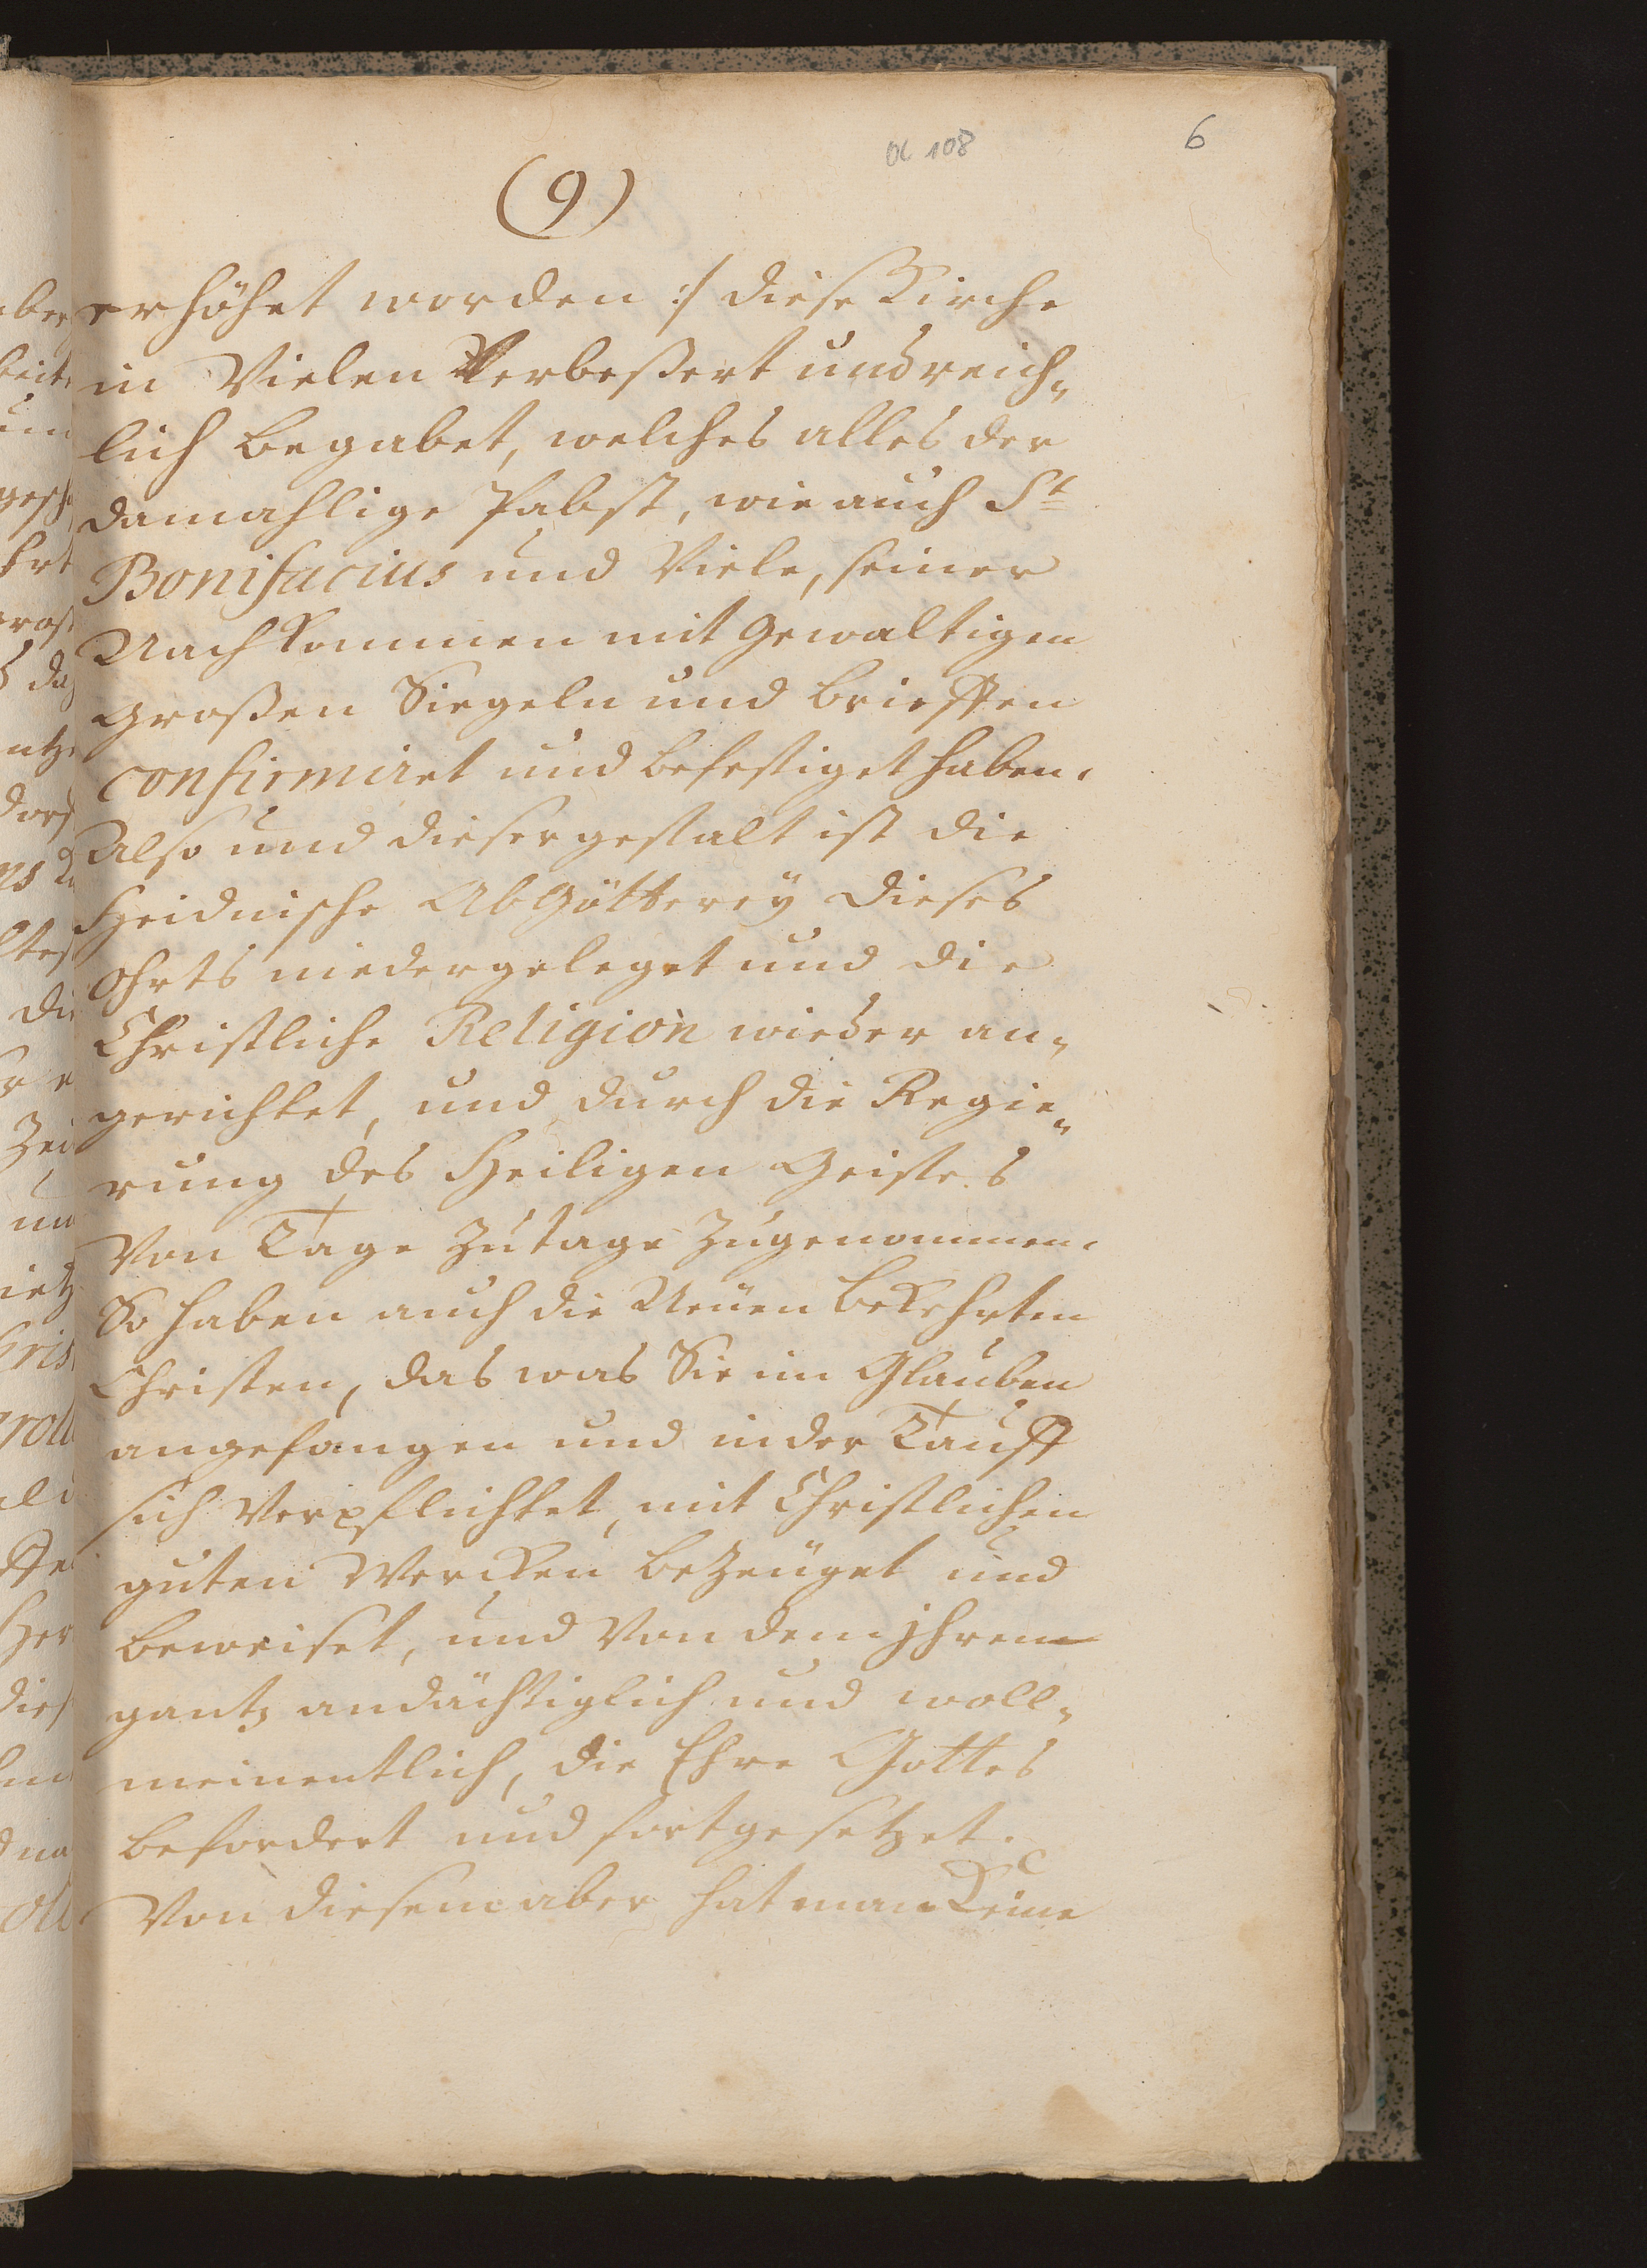 OC 108
6
(9)
erhöhet worden :/ diese Kirche
in Vielen Verbeßert und reich„
lich begabet, welches alles der
damahlige Pabst, wie auch St
Bonifacius und Viele, seiner
Nachkommen mit Gewaltigen
Großen Siegeln und brieffen
confirmiret und befestiget haben.
Also und dieser gestalt ist die
Heidnische AbGötterey dieses
Ohrts niedergeleget und die
Christliche Religion wieder an„
gerichtet, und durch die Regie„
rung des Heiligen Geistes
Von Tage zu tage zugenommen.
So haben auch die Neuen bekehrten
Christen, das was Sie im Glauben
angefangen und in der Tauff
sich Verpflichtet, mit Christlichen
guten Wercken bezeuget und
beweiset, und Von dem jhren
gantz andächtiglich und woll„
meinentlich, die Ehre Gottes
befordert und fortgesetzet.
Von diesem aber hat man Keine